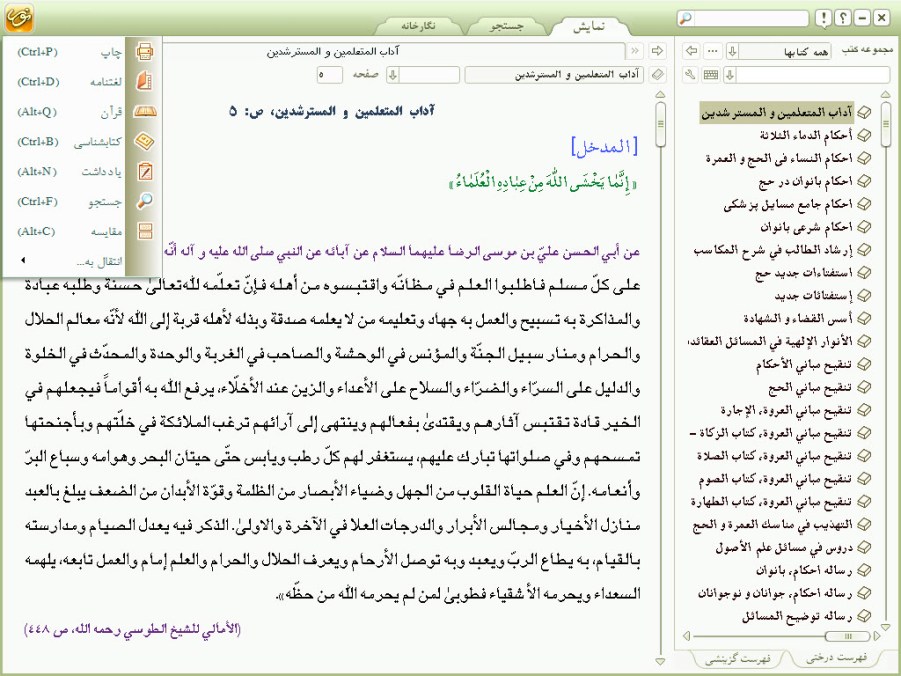 نمایش
جستجو
نگارخانه
مجموعه کتب
همه کتابها
آداب المتعلمین و المسترشدین
آداب المتعلمین و المسترشدین
صفحه
۵
چاپ (Ctrl+P)
لغتنامه (Ctrl+D)
قرآن (Alt+Q)
کتابشناسی (Ctrl+B)
یادداشت (Alt+N)
جستجو (Ctrl+F)
مقایسه (Alt+C)
انتقال به...
آداب المتعلمین و المسترشدین
أحکام الدماء الثلاثة
احکام النساء فی الحج و العمرة
احکام بانوان در حج
احکام جامع مسایل پزشکی
احکام شرعی بانوان
إرشاد الطالب في شرح المکاسب
استفتاءات جدید حج
إستفتائات جدید
أسس القضاء و الشهادة
الأنوار الإلهیة في المسائل العقائد
تنقیح مباني الأحکام
تنقیح مباني الحج
تنقیح مباني العروة، الإجارة
تنقیح مباني العروة، کتاب الزکاة –
تنقیح مباني العروة، کتاب الصلاة
تنقیح مباني العروة، کتاب الصوم
تنقیح مباني العروة، کتاب الطهارة
التهذیب في مناسك العمرة و الحج
دروس في مسائل علم الأصول
رساله احکام، بانوان
رساله احکام، جوانان و نوجوانان
رساله توضیح المسائل
فهرست درختی
فهرست گزینشی
آداب المتعلمین و المسترشدین، ص: ۵
[المدخل]
﴿إِنَّمَا یَخْشَی اللّٰهَ مِنْ عِبَادِهِ الْعُلَمَاءُ﴾
عن أبي الحسن عليّ بن موسى الرضا عليهما السلام عن آبائه عن النبي صلى الله عليه و آله أنّه
على كلّ مسلم فاطلبوا العلم في مظانّه واقتبسوه من أهله فإنّ تعلّمه للّه‌تعالى حسنة وطلبه عبادة
والمذاكرة به تسبيح والعمل به جهاد وتعليمه من لا يعلمه صدقة وبذله لأهله قربة إلى اللّه لأنّه معالم الحلال
والحرام ومنار سبيل الجنّة والمؤنس في الوحشة والصاحب في الغربة والوحدة والمحدّث في الخلوة
والدليل على السرّاء والضرّاء والسلاح على الأعداء والزين عند الأخلّاء، يرفع اللّه به أقواماً فيجعلهم في
الخير قادة تقتبس آثارهم ويقتدىٰ بفعالهم وينتهى إلى آرائهم ترغب الملائكة في خلّتهم وبأجنحتها
تمسحهم وفي صلواتها تبارك عليهم، يستغفر لهم كلّ رطب ويابس حتّى حيتان البحر وهوامه وسباع البرّ
وأنعامه. إنّ العلم حياة القلوب من الجهل وضياء الأبصار من الظلمة وقوّة الأبدان من الضعف يبلغ بالعبد
منازل الأخيار ومجالس الأبرار والدرجات العلا في الآخرة والاولىٰ. الذكر فيه يعدل الصيام ومدارسته
بالقيام، به يطاع الربّ ويعبد وبه توصل الأرحام ويعرف الحلال والحرام والعلم إمام والعمل تابعه، يلهمه
السعداء ويحرمه الأشقياء فطوبىٰ لمن لم يحرمه اللّه من حظّه».
(الأمالي للشيخ الطوسي رحمه الله، ص ٤٤٨)